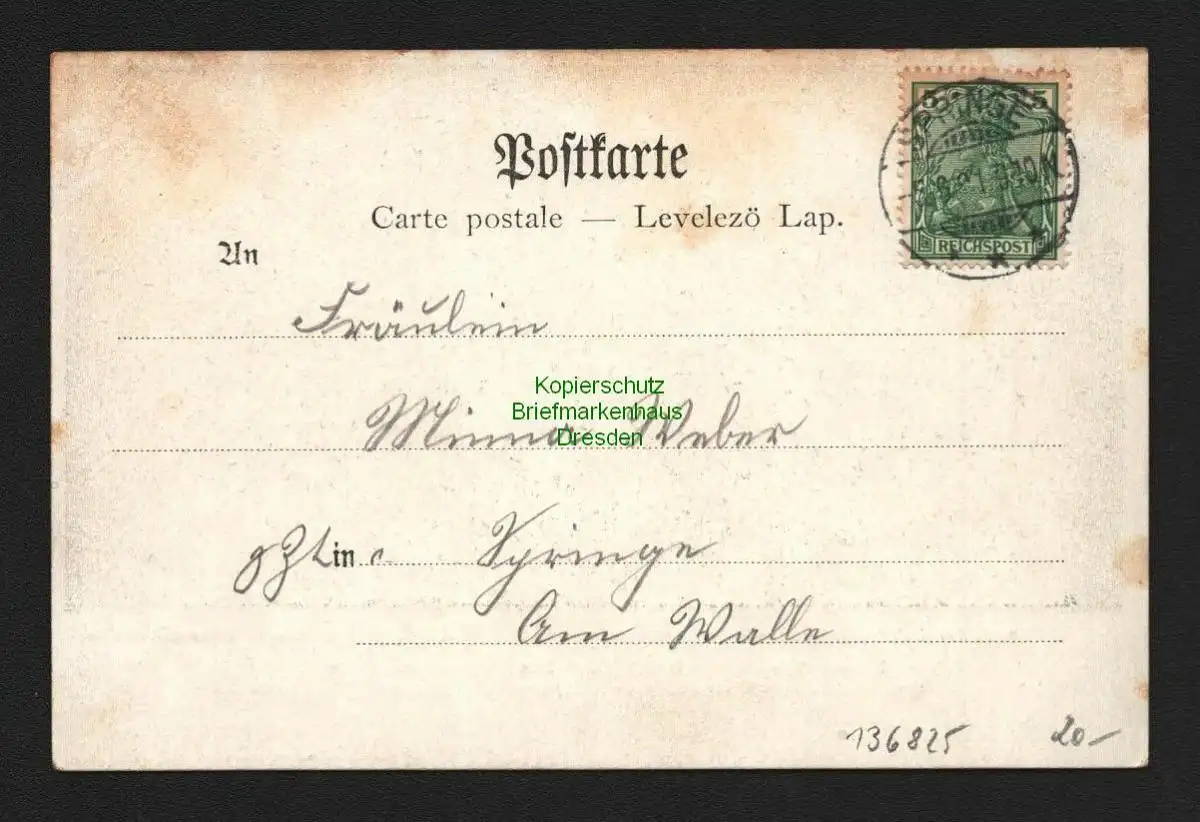 Postkarte
Carte postale — Levelezö Lap.
5 5
SPRINGE
REICHSPOST
An
Fräulein
Kopierschutz
Briefmarkenhaus
Dresden
Minna Weber
in Springe
Am Walle
136825
20-